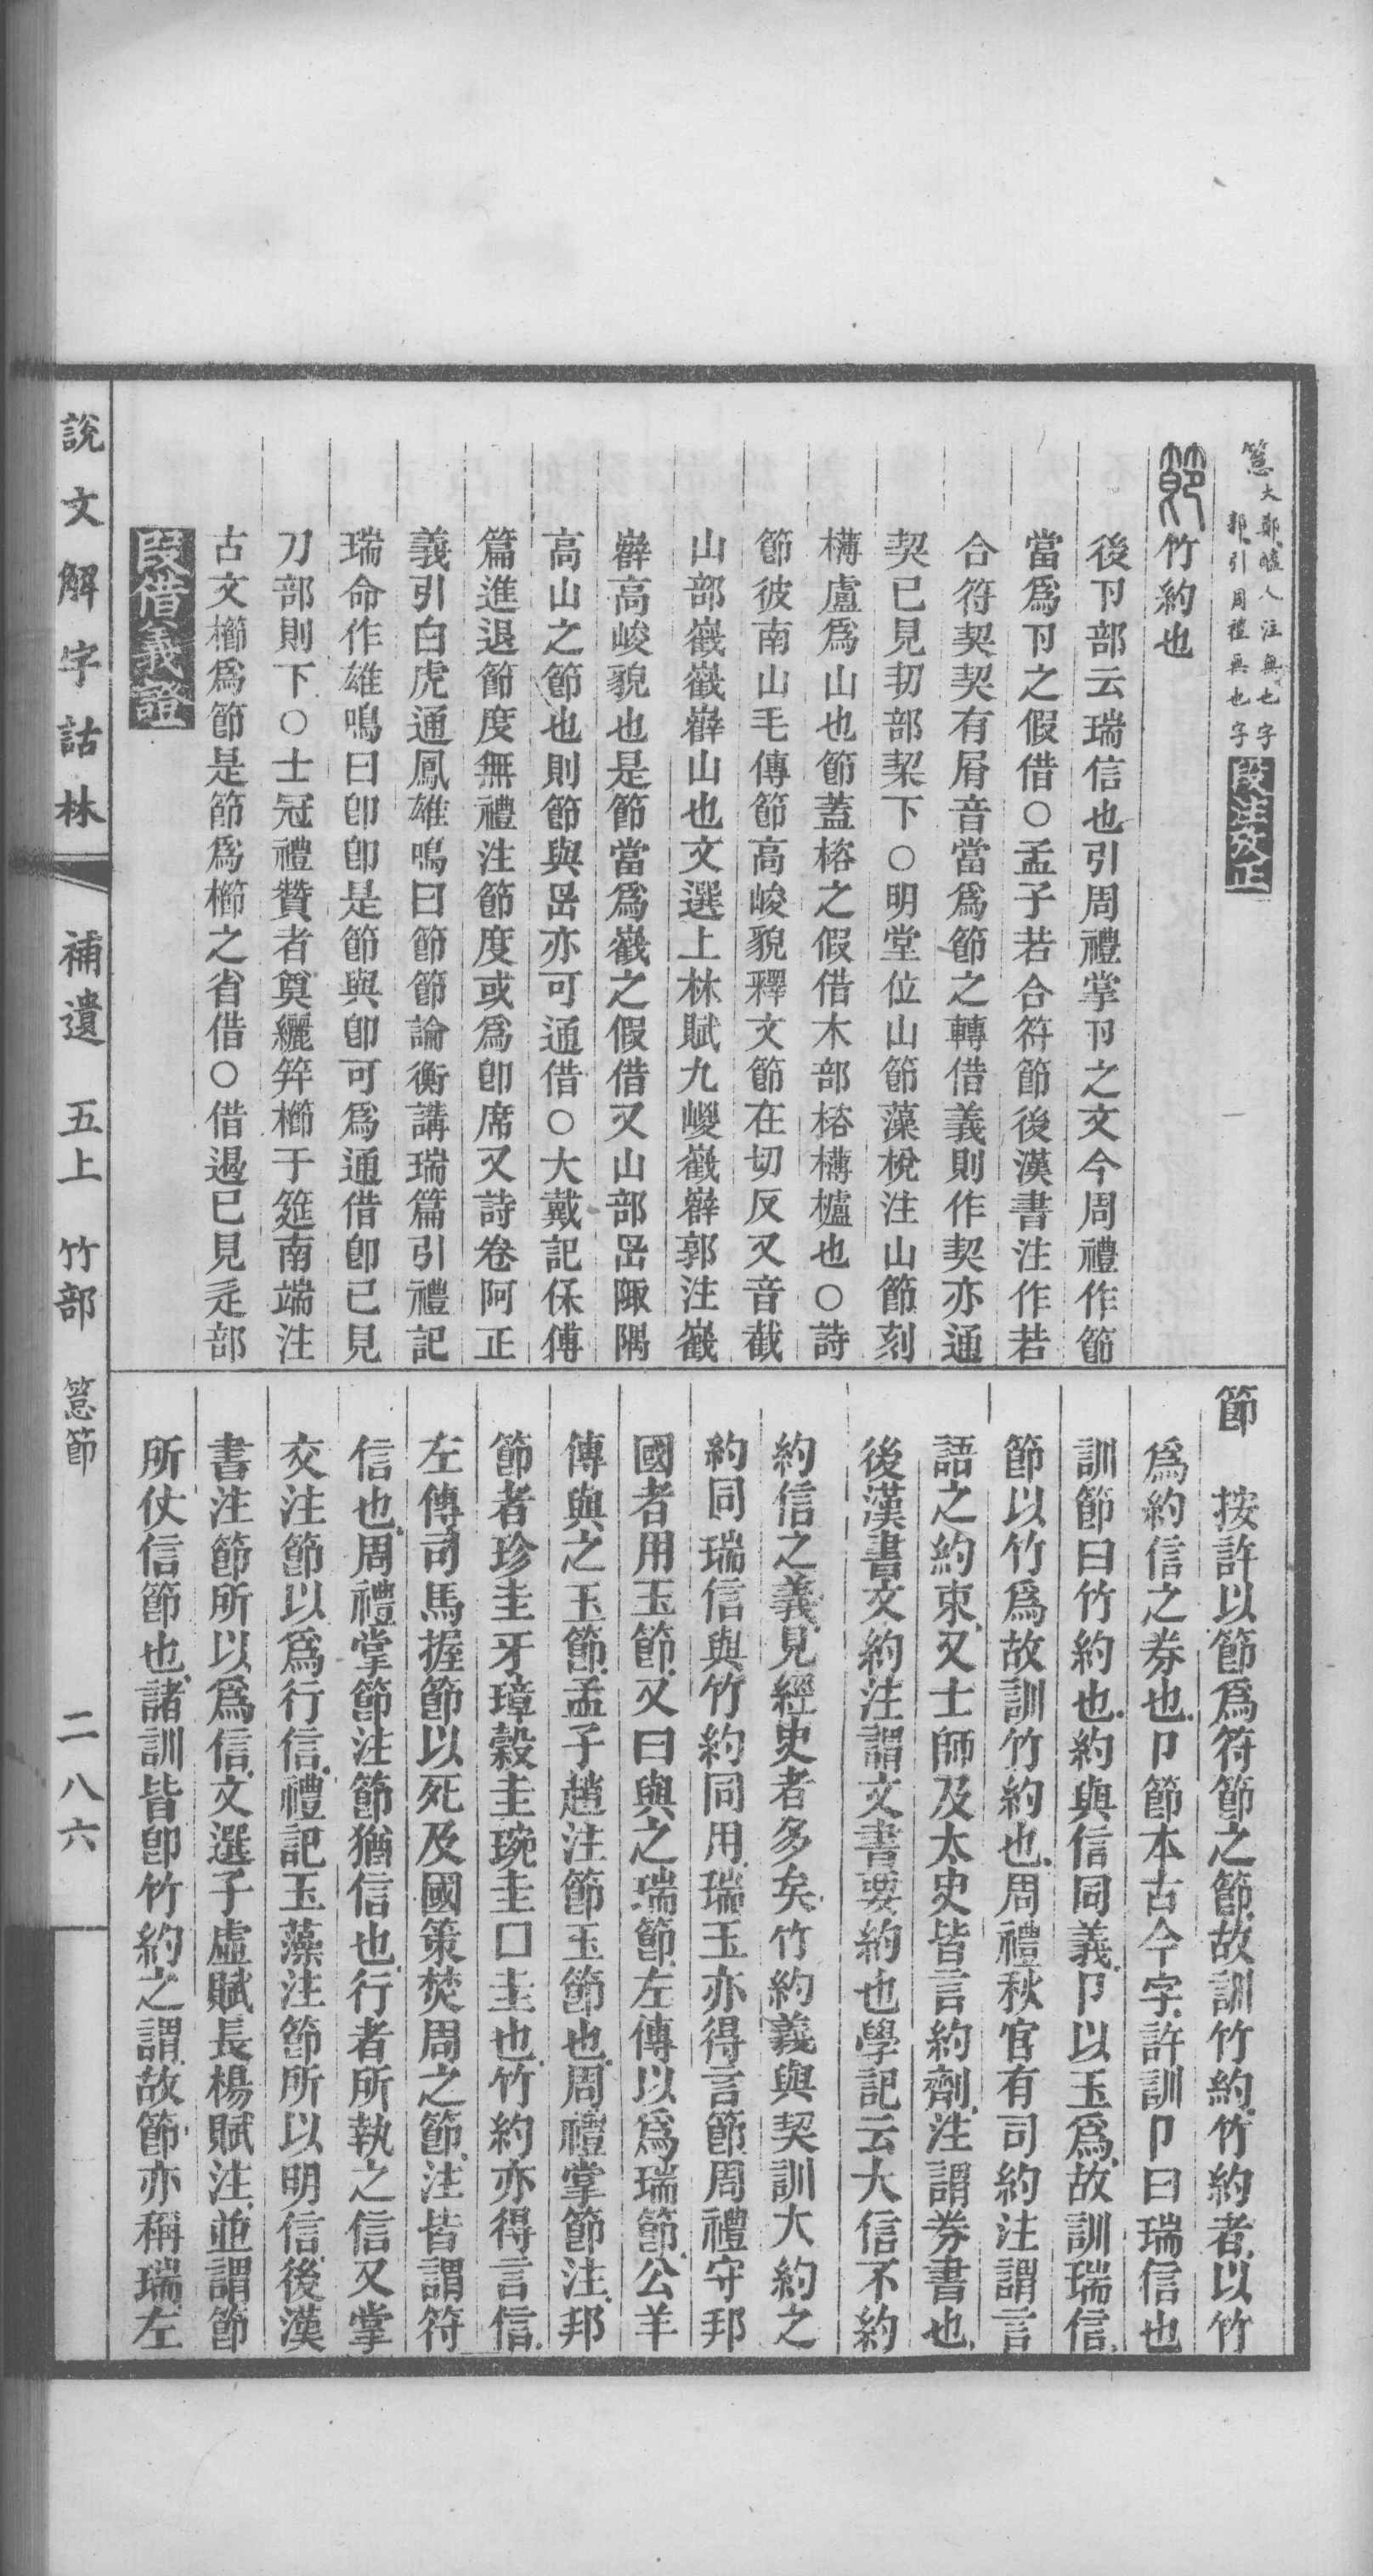 𥳑大鄭醢人注無也字
鄭引周禮無也字段注攷正
節竹約也
後卪部云瑞信也引周禮掌卪之文今周禮作節
當爲卪之假借○孟子若合符節後漢書注作若
合符契契有屑音當爲節之轉借義則作契亦通
契已見㓞部栔下○明堂位山節藻梲注山節刻
構盧爲山也節蓋楶之假借木部楶構櫨也○詩
節彼南山毛傳節高峻貌釋文節在切反又音截
山部嶻嶻嶭山也文選上林賦九嵕嶻嶭郭注嶻
嶭高峻貌也是節當爲嶻之假借又山部岊陬隅
高山之節也則節與岊亦可通借○大戴記保傅
篇進退節度無禮注節度或爲卽席又詩卷阿正
義引白虎通鳳雄鳴曰節節論衡講瑞篇引禮記
瑞命作雄鳴曰卽卽是節與卽可爲通借卽已見
刀部則下○士冠禮贊者奠纚笄櫛于筵南端注
古文櫛爲節是節爲櫛之省借○借遏已見辵部
段借義證
節　按許以節爲符節之節故訓竹約竹約者以竹
爲約信之券也卩節本古今字許訓卩曰瑞信也
訓節曰竹約也約與信同義卩以玉爲故訓瑞信
節以竹爲故訓竹約也周禮秋官有司約注謂言
語之約束又士師及太史皆言約劑注謂券書也
後漢書文約注謂文書要約也學記云大信不約
約信之義見經史者多矣竹約義與契訓大約之
約同瑞信與竹約同用瑞玉亦得言節周禮守邦
國者用玉節又曰與之瑞節左傳以爲瑞節公羊
傳與之玉節孟子趙注節玉節也周禮掌節注邦
節者珍圭牙璋穀圭琬圭口圭也竹約亦得言信
左傳司馬握節以死及國策焚周之節注皆謂符
信也周禮掌節注節猶信也行者所執之信又掌
交注節以爲行信禮記玉藻注節所以明信後漢
書注節所以爲信文選子虛賦長楊賦注並謂節
所仗信節也諸訓皆卽竹約之謂故節亦稱瑞左
說文解字詁林　補遺　五上　竹部　節　二八六